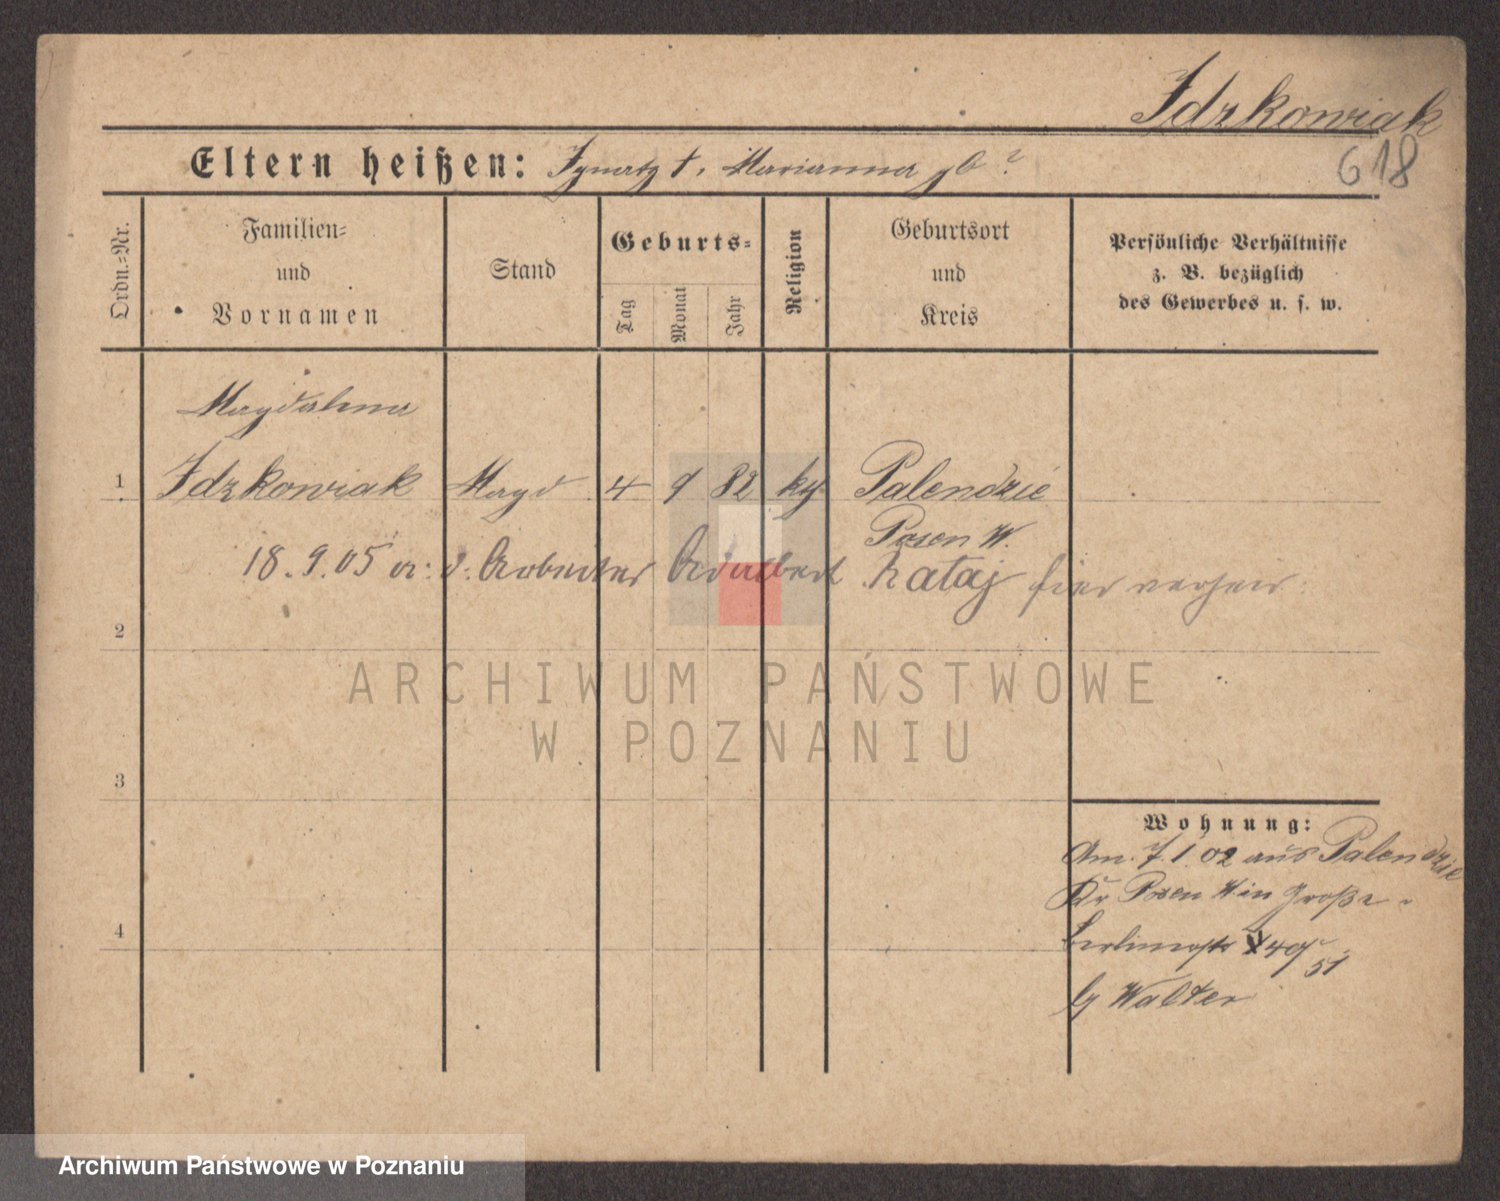 Idzkowiak
618
Eltern heißen: Ignatz †, Marianna gb ?
Ordn.-Nr.
Familien-
und
Vornamen
Stand
Geburts-
Tag
Monat
Jahr
Religion
Geburtsort
und
Kreis
Persönliche Verhältnisse
z. B. bezüglich
des Gewerbes u. s. w.
Magdalena
1 Idzkowiak Magd 4 9 82 kg Palendzie
Posen W.
18. 9. 05 d. Arbeiter Adalbert Rataj hier verheir.
2
ARCHIWUM PAŃSTWOWE
W POZNANIU
3
Wohnung:
Am 7. 1. 02 aus Palendzie
Kr Posen W in Große
4
Berlinerstr 49/51
Walter
Archiwum Państwowe w Poznaniu